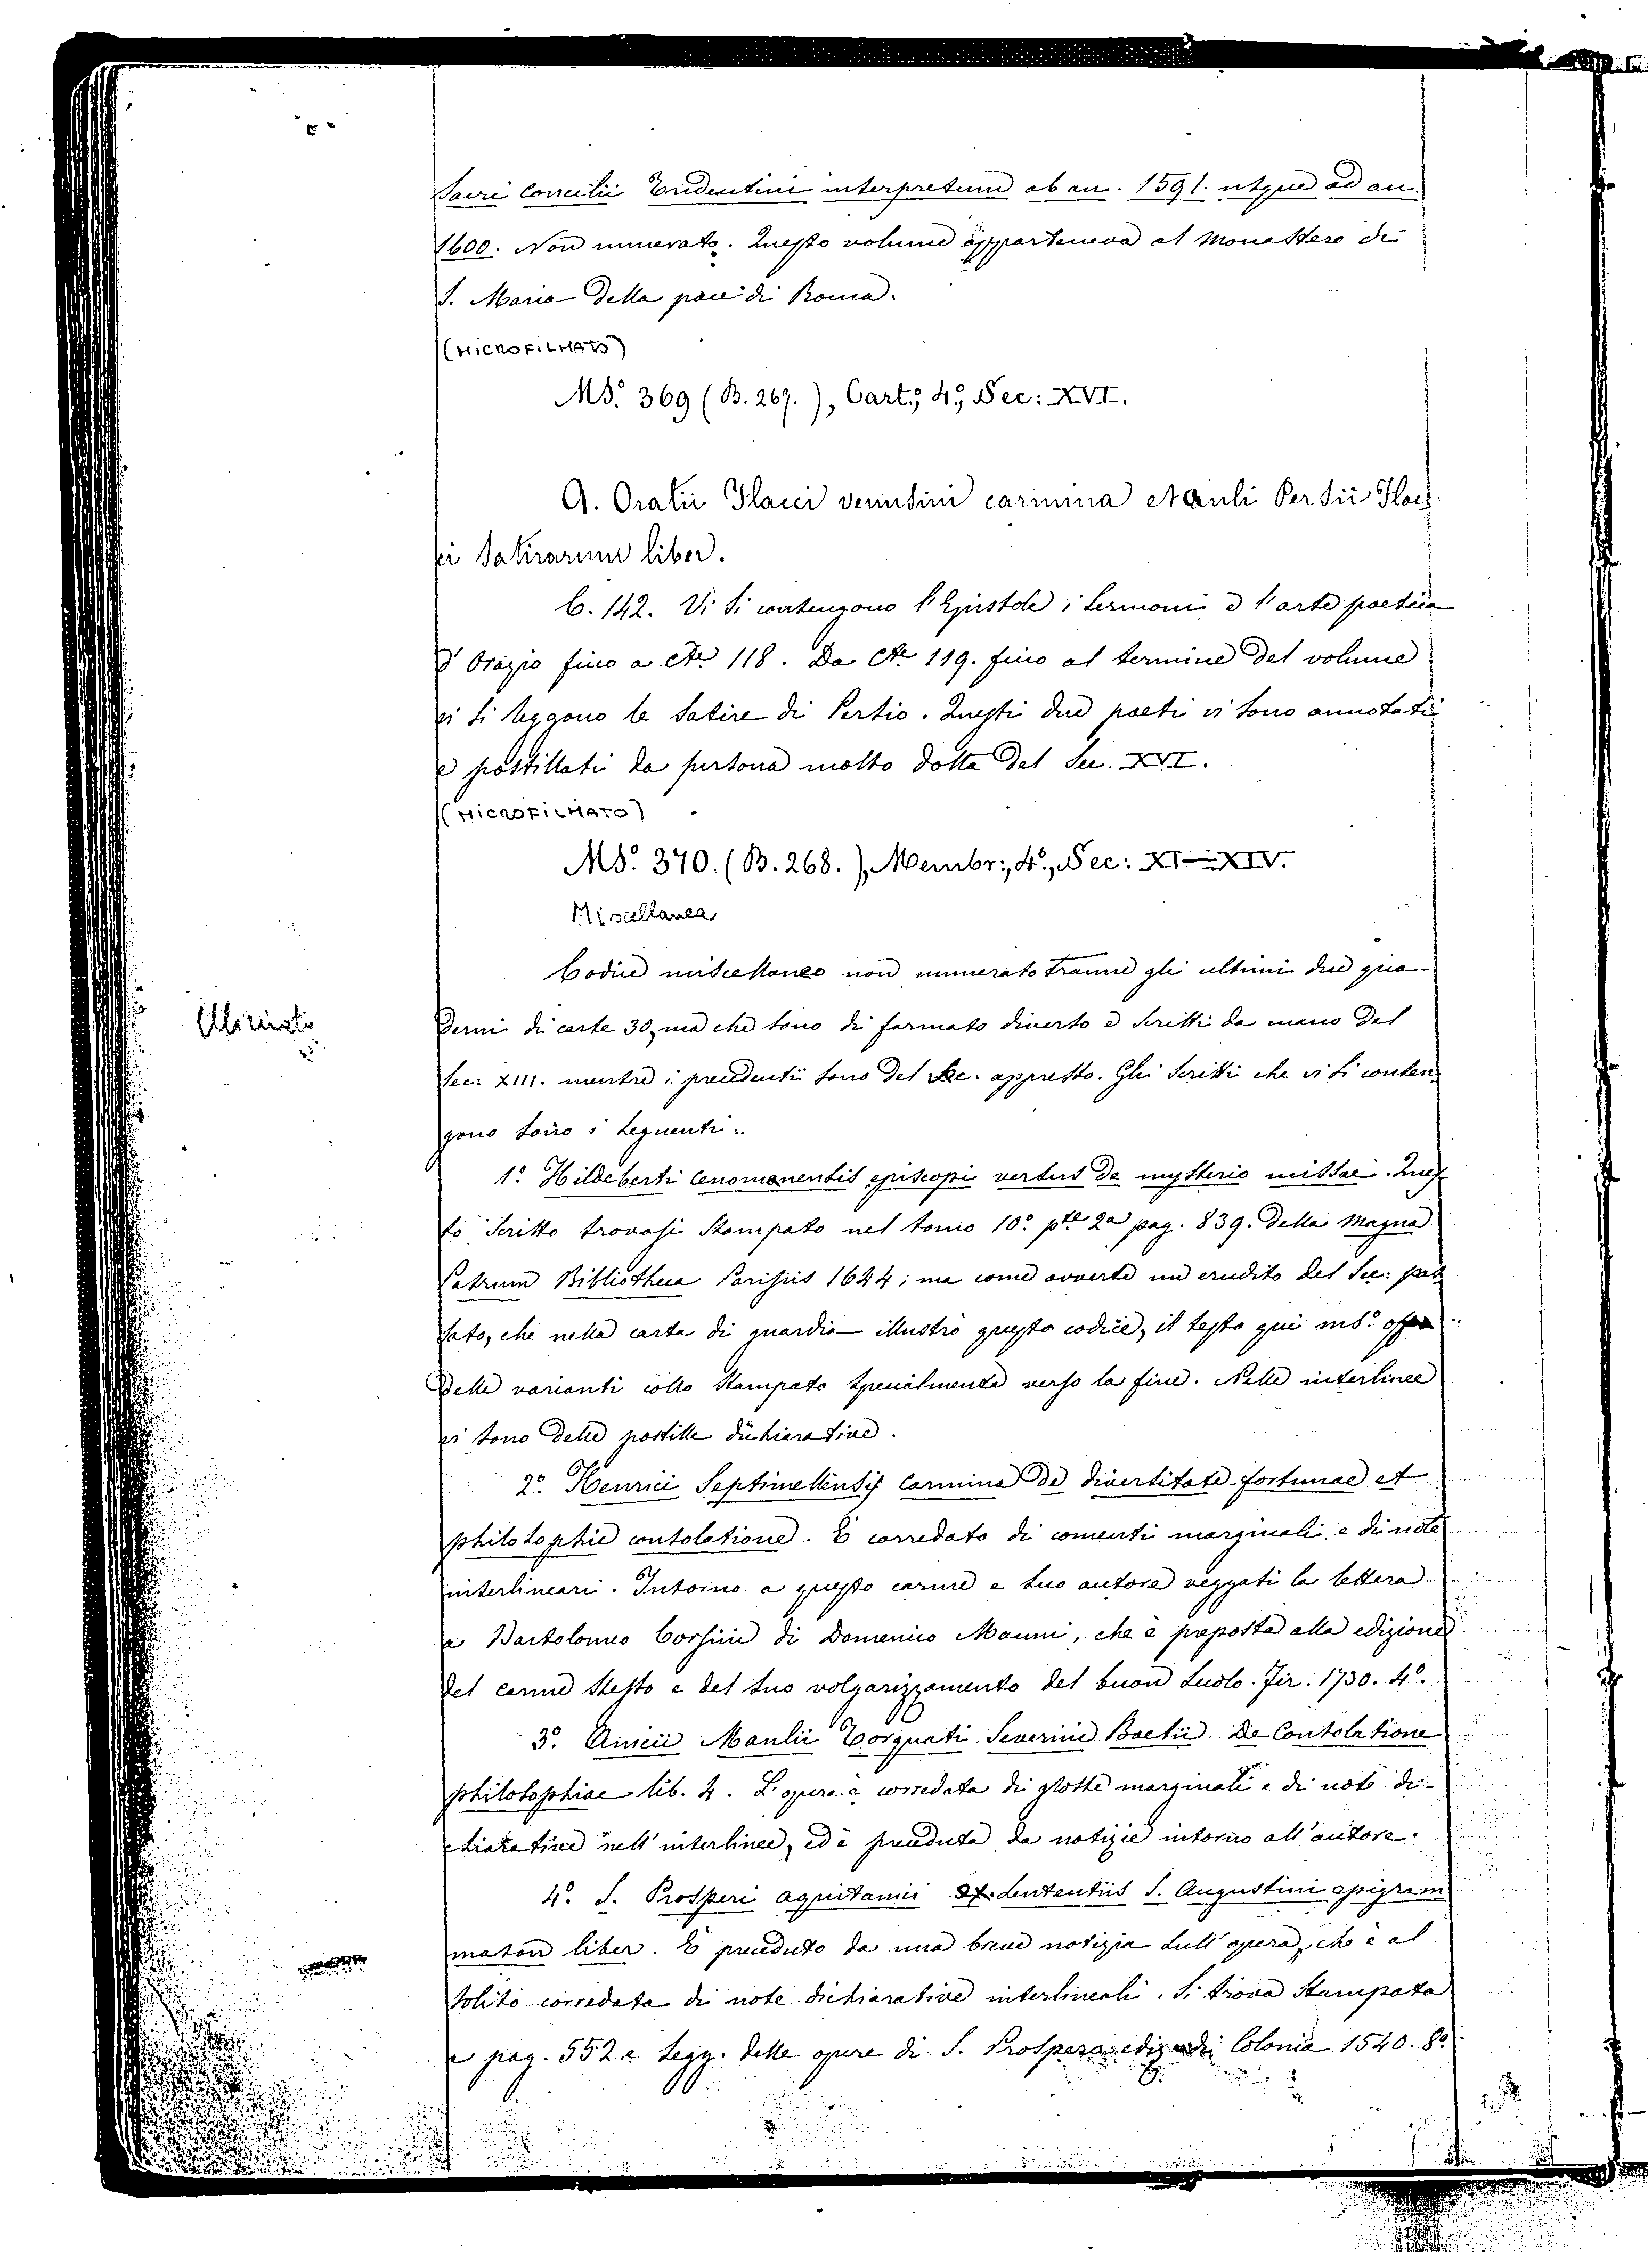 Sacri Concilii Tridentini interpretum ab an. 1591. usque ad an.
1600. Non numerato. Questo volume apparteneva al Monastero di
S. Maria della pace di Roma.
(MICROFILMATO)
MS. 369 (B. 267.), Cart:, 4º, Sec: XVI.
Q. Oratii Flacci venusini carmina et Auli Persii Flac
ci Satirarum liber.
C. 142. Vi si contengono l'Epistole i Sermoni e l'arte poetica
d'Orazio fino a cte 118. Da cte 119. fino al termine del volume
vi si leggono le Satire di Persio. Questi due poeti vi sono annotati
e postillati da persona molto dotta del Sec. XVI.
(MICROFILMATO)
MS. 370. (B. 268.), Membr:, 4º, Sec: XI-XIV.
Miscellanea
Codice miscellaneo non numerato tranne gli ultimi due qua-
derni di carte 30, ma che sono di formato diverso e scritti da mano del
Sec: XIII. mentre i precedenti sono del Sec. appresso. Gli scritti che vi si conten
gono sono i seguenti:
1º Hildeberti Cenomanensis episcopi versus de mysterio missae. Ques
to scritto trovasi stampato nel tomo 10º pte 2a pag. 839. della Magna
Patrum Bibliotheca Parisiis 1644; ma come avverte un erudito del Sec: pas
sato, che nella carta di guardia illustrò questo codice, il testo qui ms.º offre
delle varianti collo stampato specialmente verso la fine. Nelle interlinee
vi sono delle postille dichiarative.
2º Henrici Septimellensis Carmina de diversitate fortunae et
philosophie consolatione. È corredato di comenti marginali e di note
interlineari. Intorno a questo carme e suo autore veggasi la lettera
a Bartolomeo Corsini di Domenico Manni, che è preposta alla edizione
del carme stesso e del suo volgarizzamento del buon Secolo. Fir. 1730. 4º.
3º Anicii Manlii Torquati Severini Boetii De Consolatione
philosophiae lib. 4. L'opera è corredata di glosse marginali e di note di-
chiarative nell'interlinee, ed è preceduta da notizie intorno all'autore.
4º S. Prosperi aquitanici ex sententiis S. Augustini epigram
maton liber. È preceduto da una breve notizia sull'opera, che è al
solito corredata di note dichiarative interlineali. Si trova stampata
a pag. 552 e segg. delle opere di S. Prospero ediz. di Colonia 1540. 8º.